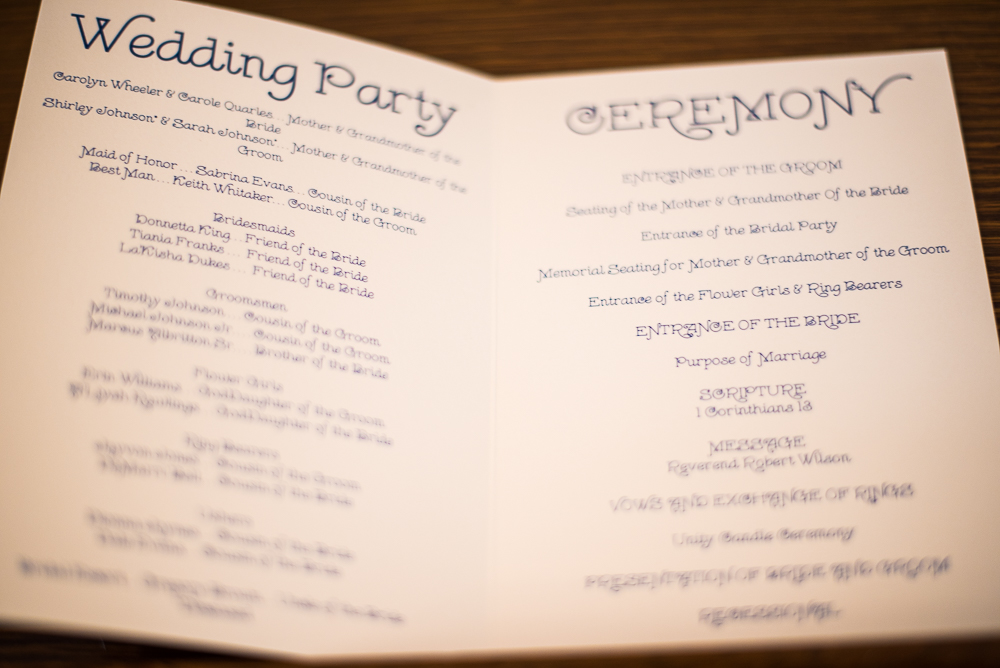 Wedding Party
Carolyn Wheeler & Carole Quarles... Mother & Grandmother of the
Bride
Shirley Johnson* & Sarah Johnson*... Mother & Grandmother of the
Groom
Maid of Honor... Sabrina Evans... Cousin of the Bride
Best Man... Keith Whitaker... Cousin of the Groom
Bridesmaids
Donnetta King... Friend of the Bride
Tiania Franks... Friend of the Bride
LaKisha Dukes... Friend of the Bride
Groomsmen
Timothy Johnson... Cousin of the Groom
Michael Johnson Jr... Cousin of the Groom
Marcus Sr... Brother of the Bride
Flower Girls
Erin Williams... GodDaughter of the Groom
GodDaughter of the Bride
Ring Bearers
Cousin of the Groom
Cousin of the Bride
Ushers
Cousin of the Bride
Cousin of the Bride
of the Bride
CEREMONY
ENTRANCE OF THE GROOM
Seating of the Mother & Grandmother Of the Bride
Entrance of the Bridal Party
Memorial Seating for Mother & Grandmother of the Groom
Entrance of the Flower Girls & Ring Bearers
ENTRANCE OF THE BRIDE
Purpose of Marriage
SCRIPTURE
1 Corinthians 13
MESSAGE
Reverend Robert Wilson
VOWS AND EXCHANGE OF RINGS
Unity Candle Ceremony
PRESENTATION OF BRIDE AND GROOM
RECESSIONAL